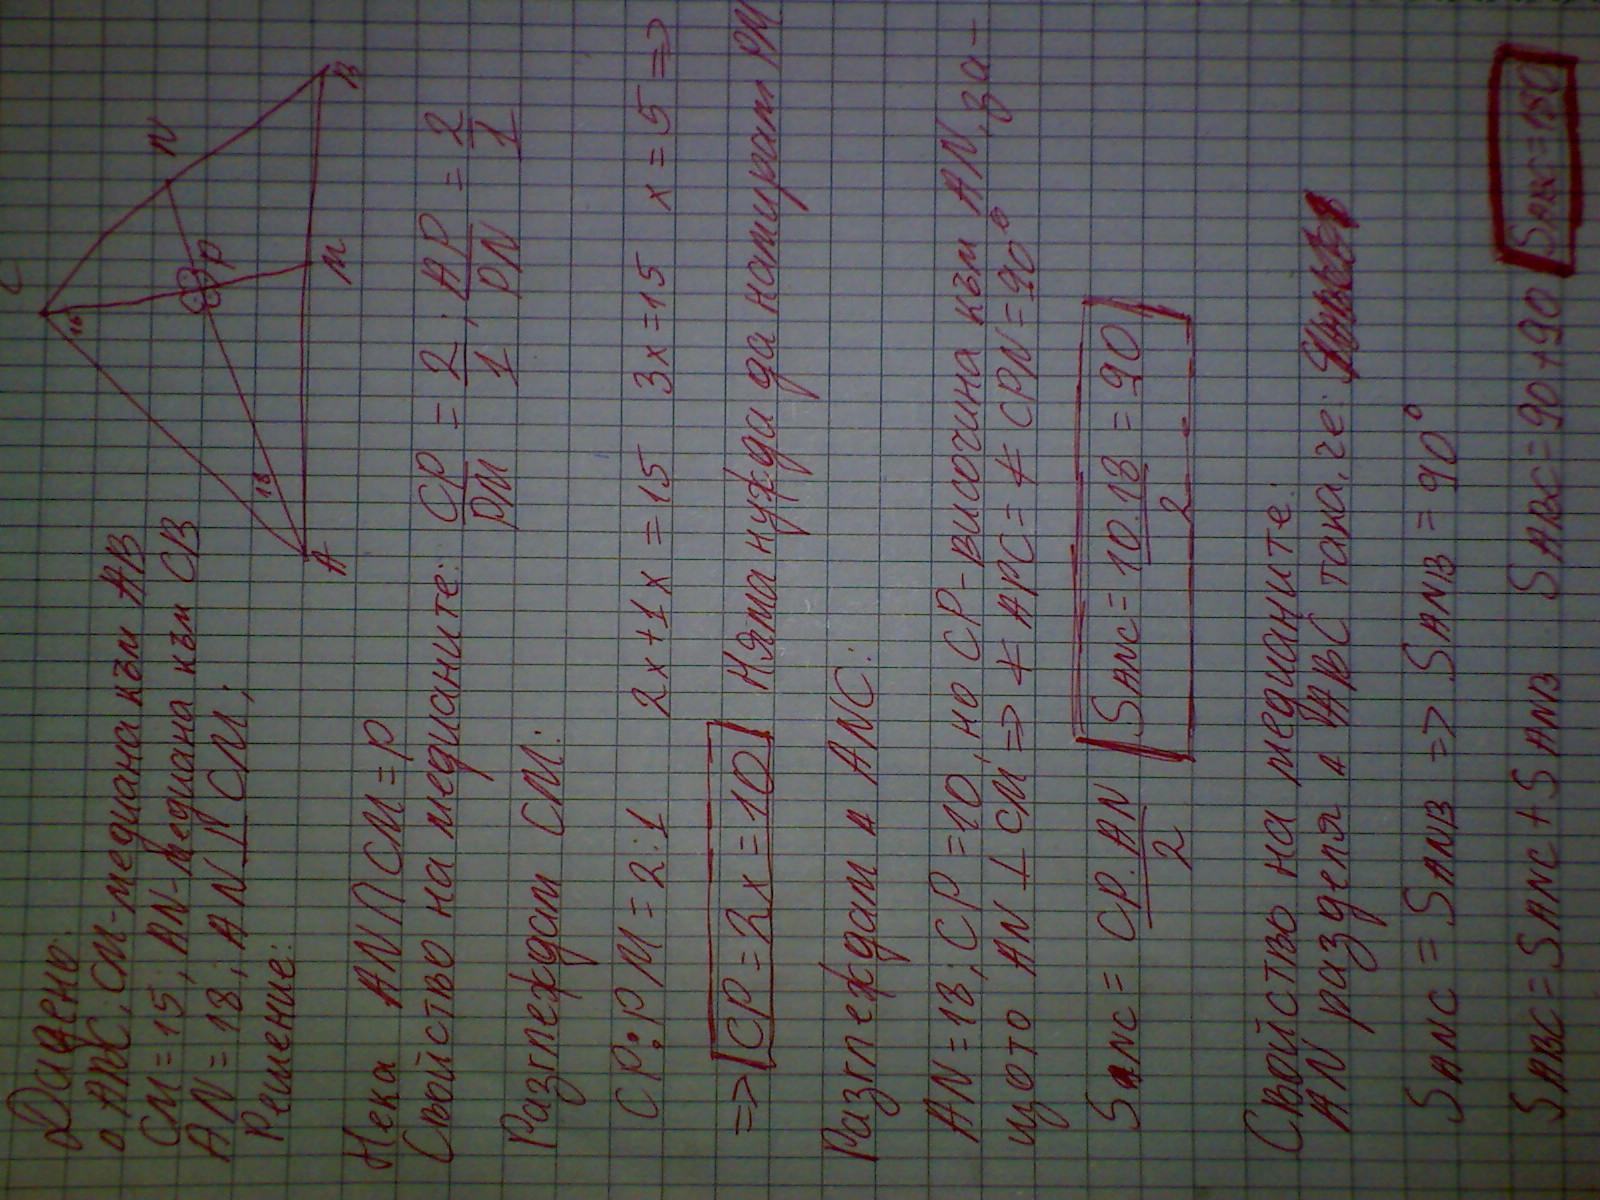 Дадено:
△ ABC; CM-медиана към AB
CM = 15; AN-медиана към CB
AN = 18; AN ⊥ CM;
Решение:
C
N
B
P
M
A
Нека AN ∩ CM = P
Свойство на медианите: CP/PM = 2/1; AP/PN = 2/1
Разглеждам CM:
CP:PM = 2:1 2x+1x = 15 3x = 15 x = 5 =>
=> CP = 2x = 10 Няма нужда да намирам PM
Разглеждам △ ANC:
AN = 18; CP = 10, но CP-височина към AN, за-
щото AN ⊥ CM => ∢ APC = ∢ CPN = 90°
S ANC = CP.AN/2 S ANC = 10.18/2 = 90
Свойство на медианите:
AN разделя △ ABC така, че:
S ANC = S ANB => S ANB = 90°
S ABC = S ANC + S ANB S ABC = 90+90 S ABC = 180